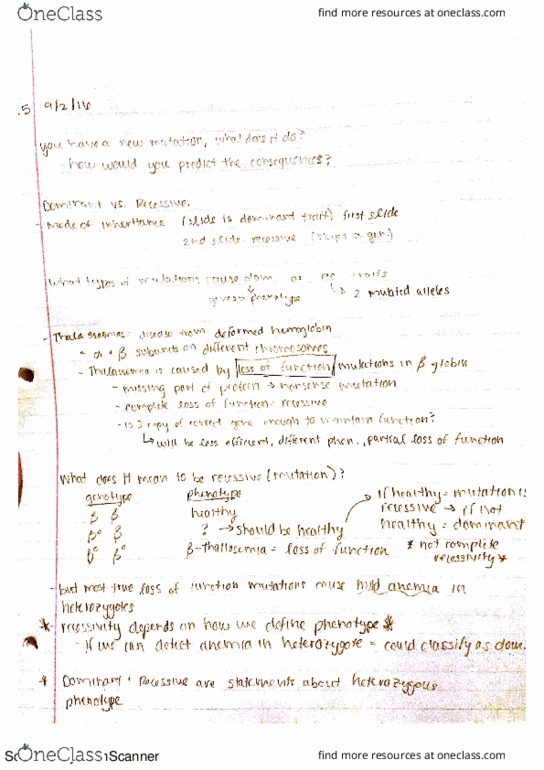 OneClass
find more resources at oneclass.com
.5 9/2/16
you have a new mutation, what does it do?
- how would you predict the consequences?
Dominant vs. Recessive.
- mode of inheritance (slide is dominant trait) first slide
2nd slide recessive (skips a gen.)
What types of mutations cause dom or rec traits
↓ given phenotype
↳ 2 mutated alleles
- Thalassemias: disease from deformed hemoglobin
- α + β subunits on different chromosomes
- Thalassemia is caused by loss of function mutations in β globin
- missing part of protein → nonsense mutation
- complete loss of function - recessive
- is 1 copy of correct gene enough to maintain function?
↳ will be less efficient, different phen., partial loss of function
What does it mean to be recessive (mutation)?
genotype phenotype
β β healthy
β° β ? → should be healthy
β° β° β-thallasemia = loss of function
→ if healthy = mutation is
recessive → if not
healthy = dominant
* not complete
recessivity *
- but most true loss of function mutations cause mild anemia in
heterozygotes
* recessivity depends on how we define phenotype *
- If we can detect anemia in heterozygote = could classify as dom.
* Dominant + Recessive are statements about heterozygous
phenotype
OneClass
Scanner
find more resources at oneclass.com